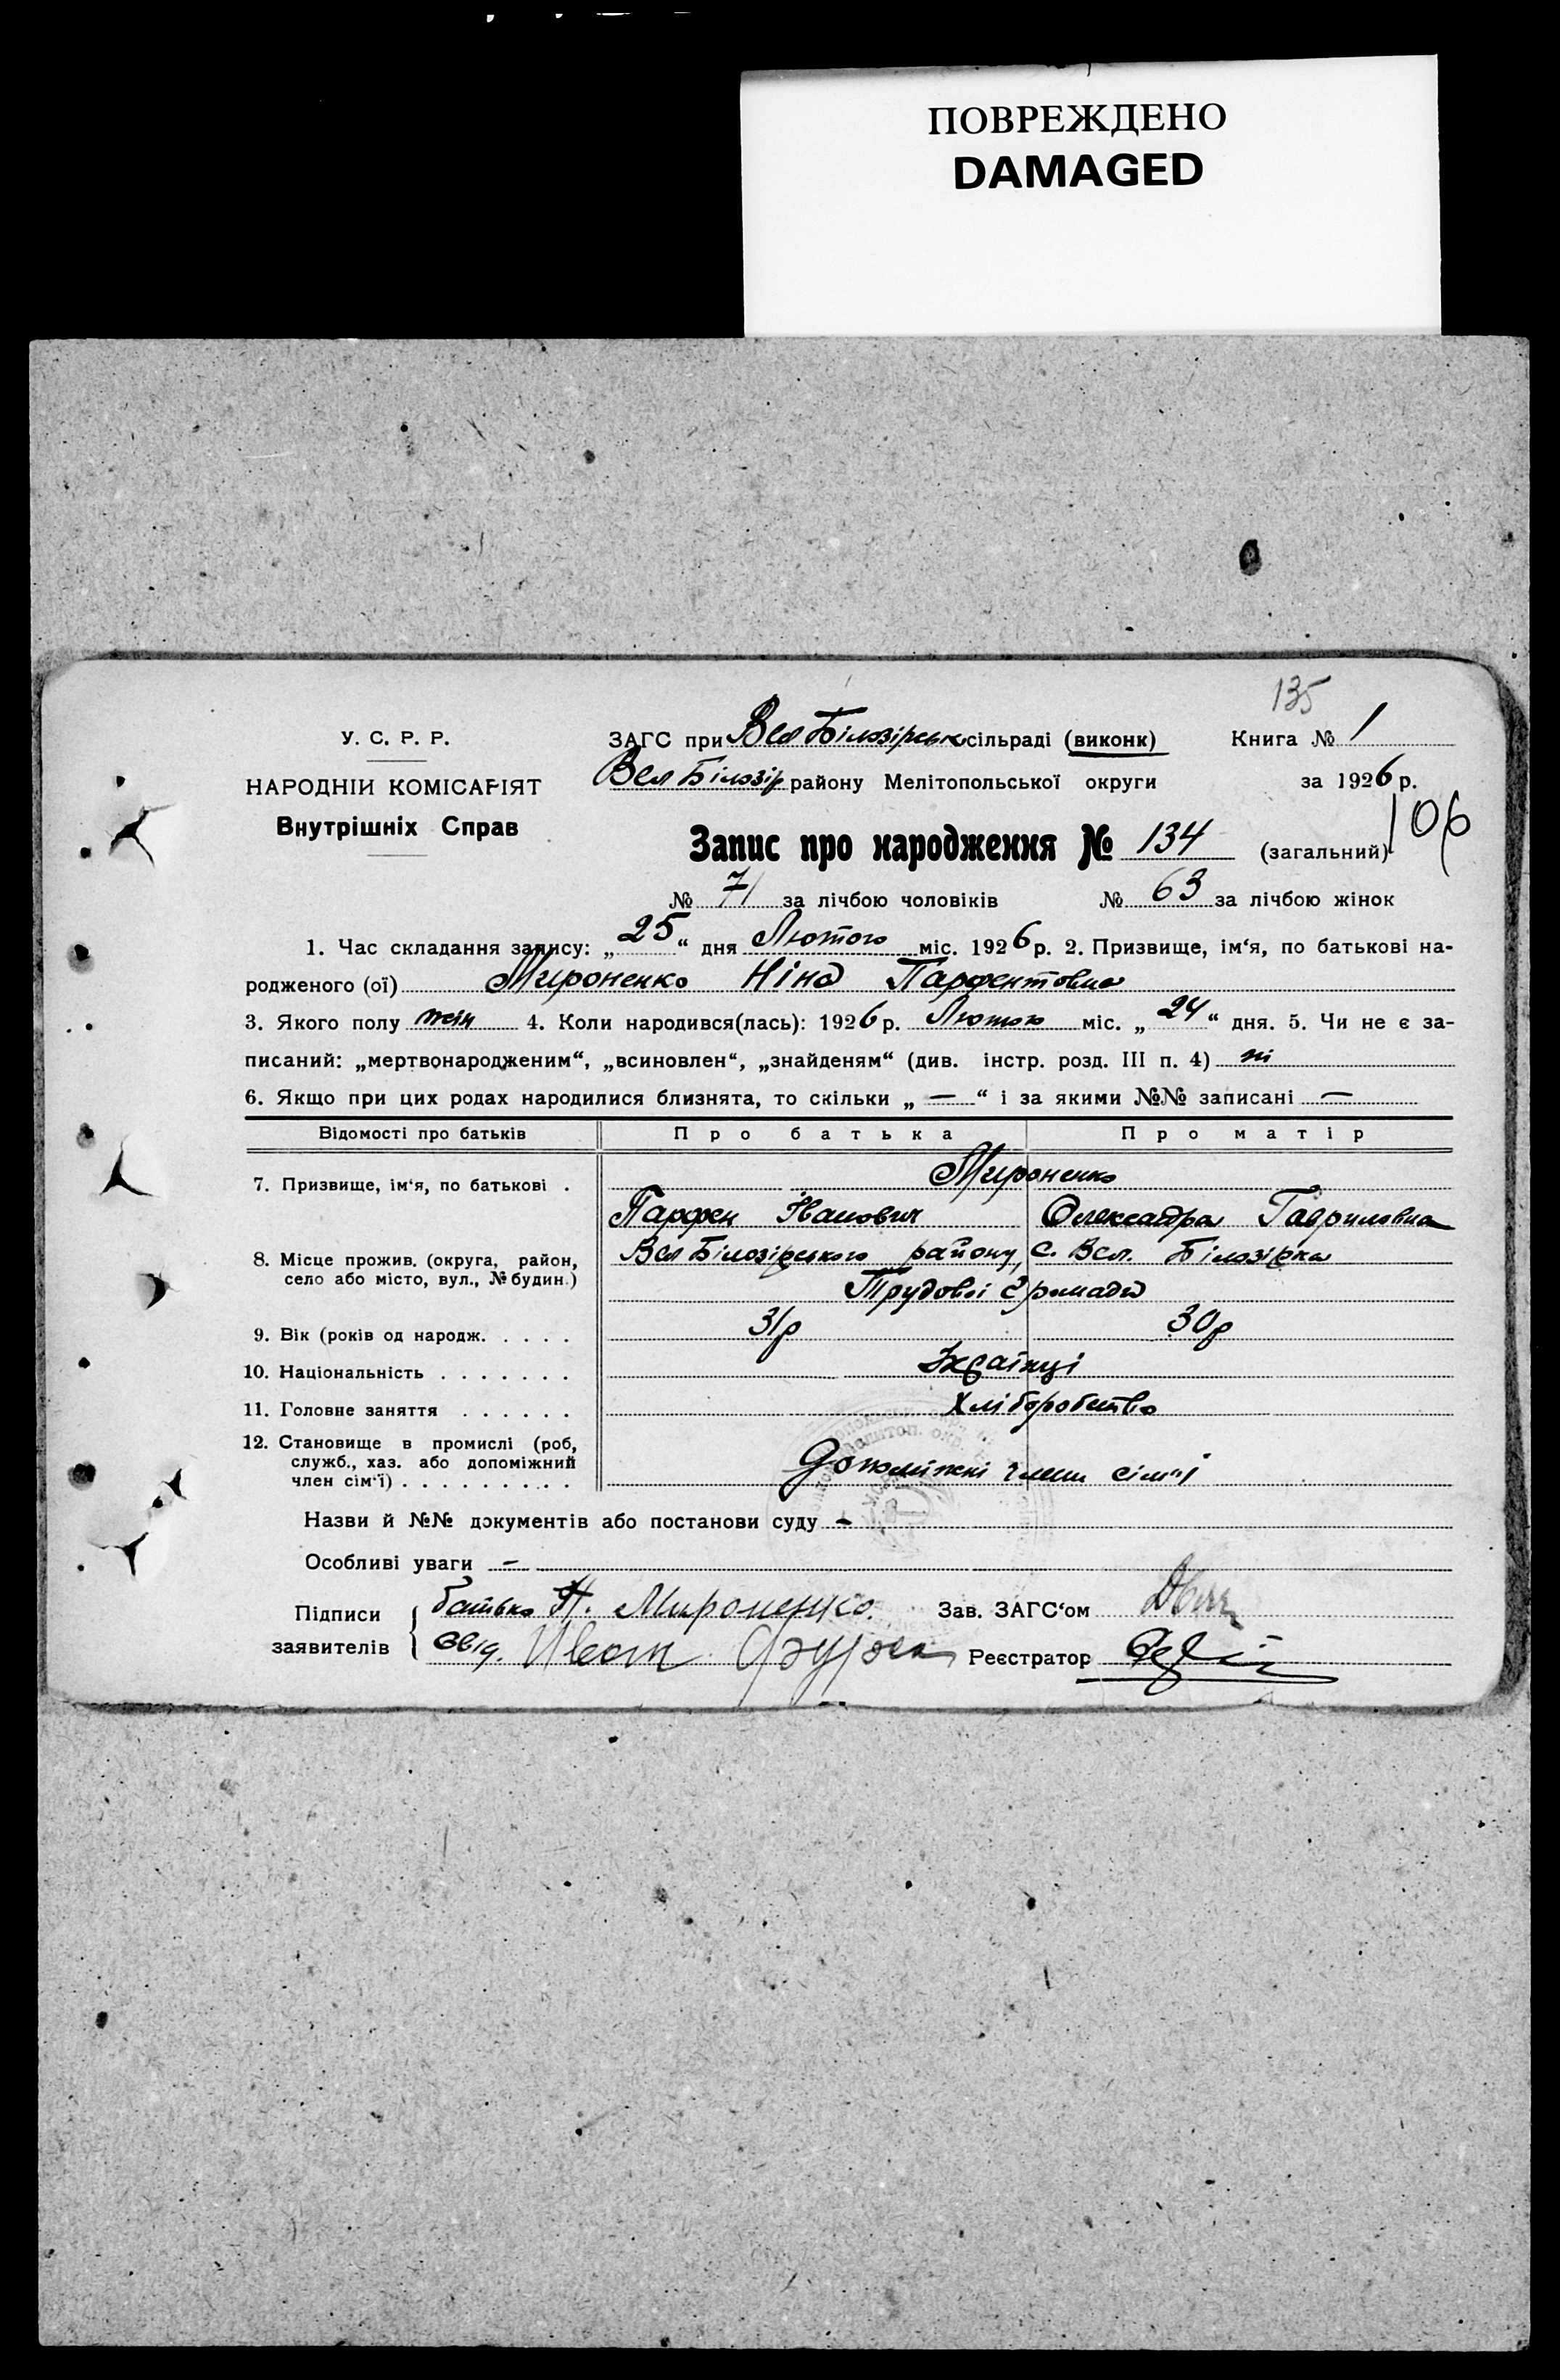 ПОВРЕЖДЕНО
DAMAGED
135
У. С. Р. Р.
НАРОДНІЙ КОМІСАРІЯТ
Внутрішніх Справ
ЗАГС при Вел Білозірськ сільраді (виконк) Книга № 1
Вел Білозір району Мелітопольської округи за 1926 р.
106
Запис про народження № 134 (загальний)
№ 71 за лічбою чоловіків № 63 за лічбою жінок
1. Час складання запису: „25“ дня Лютого міс. 1926 р. 2. Призвище, ім‘я, по батькові на-
родженого (ої) Мироненко Ніна Парфентовна
3. Якого полу жін 4. Коли народився(лась): 1926 р. Лютого міс. „24“ дня. 5. Чи не є за-
писаний: „мертвонародженим“, „всиновлен“, „знайденям“ (див. інстр. розд. III п. 4) ні
6. Якщо при цих родах народилися близнята, то скільки „—“ і за якими №№ записані —
Відомості про батьків Про батька Про матір
7. Призвище, ім‘я, по батькові . Мироненко
Парфен Іванович Олександра Гавриловна
8. Місце прожив. (округа, район, село або місто, вул., № будин.) Вел Білозірського району, с. Вел. Білозірка
Трудової громади
9. Вік (років од народж. . . . . 31р 30р
10. Національність . . . . . . . Українці
11. Головне заняття . . . . . . Хліборобство
12. Становище в промислі (роб, служб., хаз. або допоміжний член сім‘ї) . . . . . . . . . Допоміжні члени сім'ї
Назви й №№ документів або постанови суду -
Особливі уваги -
Підписи заявителів { батько П. Мироненко. Зав. ЗАГС‘ом
Свід. Реєстратор